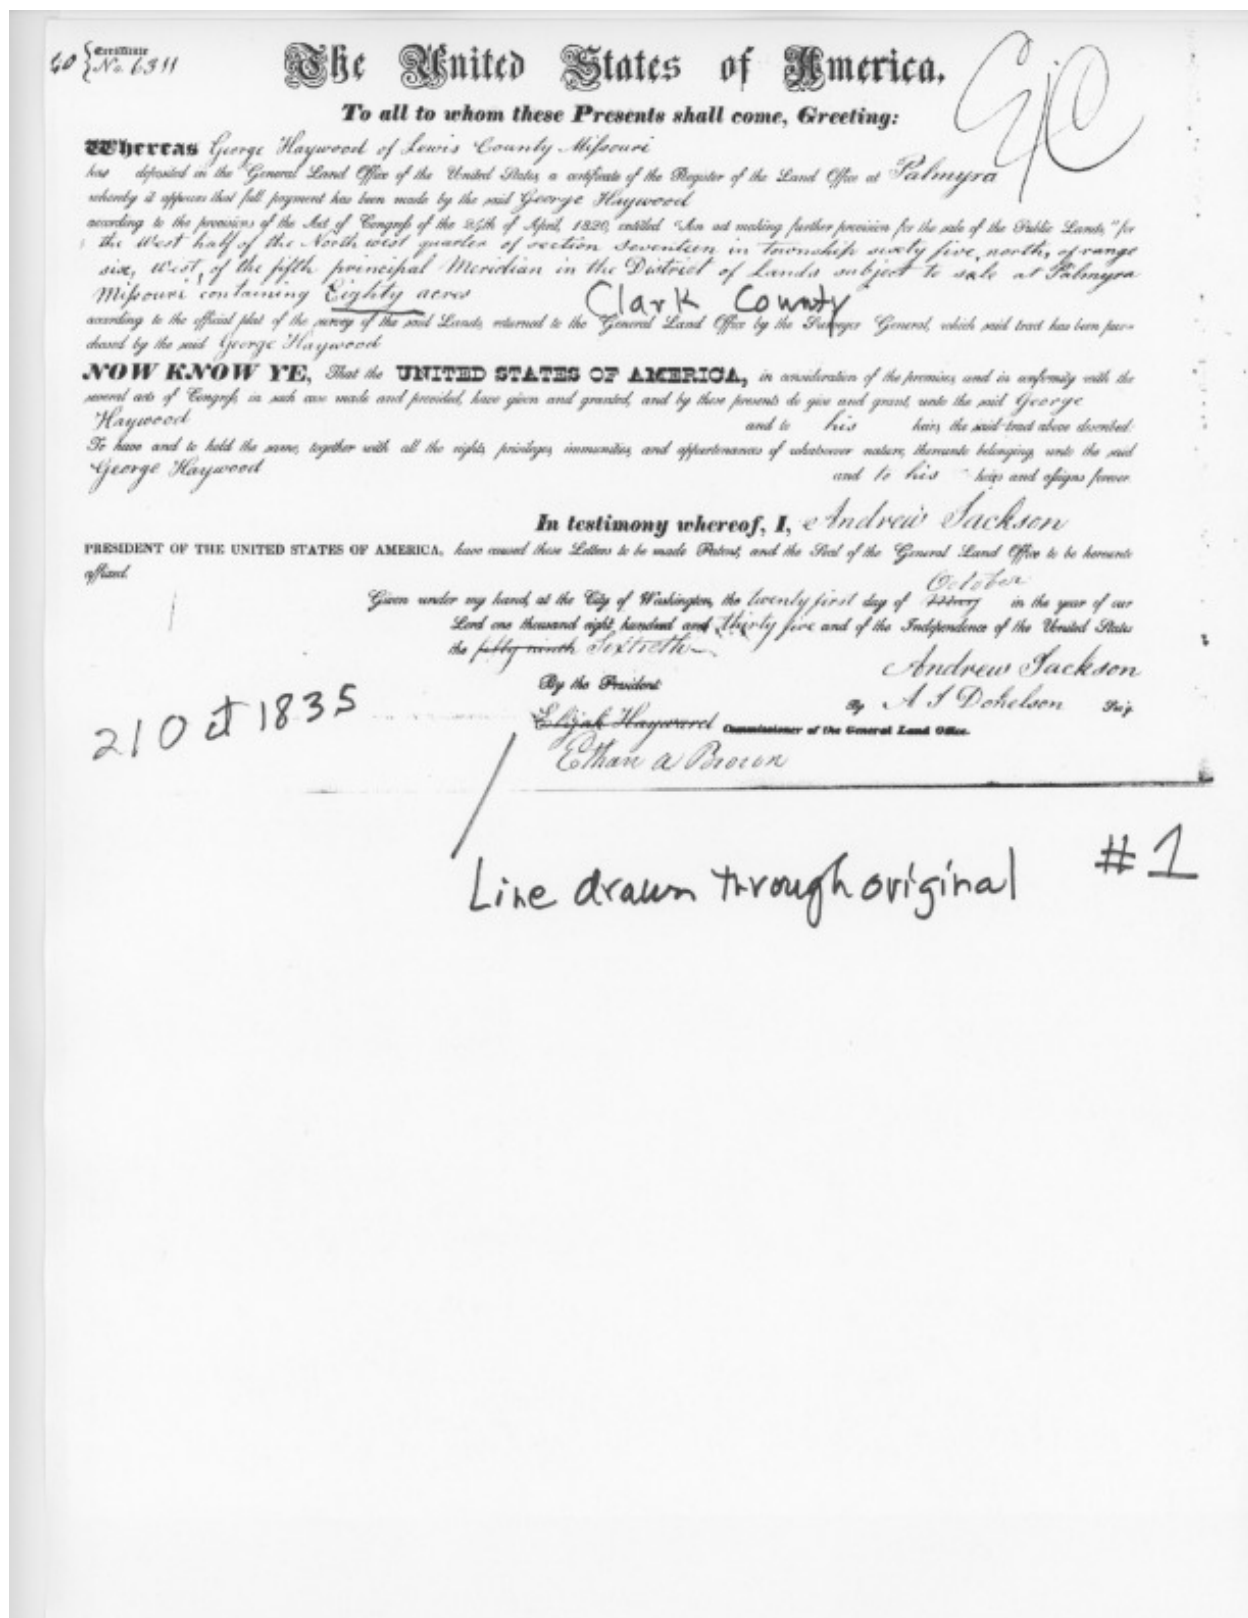 60 { Certificate
No. 6311
The United States of America.
GJC
To all to whom these Presents shall come, Greeting:
Whereas George Haywood of Lewis County Missouri
has deposited in the General Land Office of the United States, a certificate of the Register of the Land Office at Palmyra
whereby it appears that full payment has been made by the said George Haywood
according to the provisions of the Act of Congress of the 24th of April, 1820, entitled "An act making further provision for the sale of the Public Lands," for
the West half of the North west quarter of section seventeen in township sixty five, north, of range
six, West, of the fifth principal Meridian in the District of Lands subject to sale at Palmyra
Missouri containing Eighty acres
Clark County
according to the official plat of the survey of the said Lands, returned to the General Land Office by the Surveyor General, which said tract has been pur-
chased by the said George Haywood
NOW KNOW YE, That the UNITED STATES OF AMERICA, in consideration of the premises, and in conformity with the
several acts of Congress, in such case made and provided, have given and granted, and by these presents do give and grant, unto the said George
Haywood and to his heirs, the said tract above described:
To have and to hold the same, together with all the rights, privileges, immunities, and appurtenances of whatsoever nature, thereunto belonging, unto the said
George Haywood and to his heirs and assigns forever.
In testimony whereof, I, Andrew Jackson
PRESIDENT OF THE UNITED STATES OF AMERICA, have caused these Letters to be made Patent, and the Seal of the General Land Office to be hereunto
affixed.
October
Given under my hand, at the City of Washington, the twenty first day of in the year of our
Lord one thousand eight hundred and thirty five and of the Independence of the United States
the fifty ninth Sixtieth
Andrew Jackson
By the President:
By A J Donelson Sec'y
21 Oct 1835
Elijah Hayward Commissioner of the General Land Office.
Ethan A Brown
Line drawn through original
#1